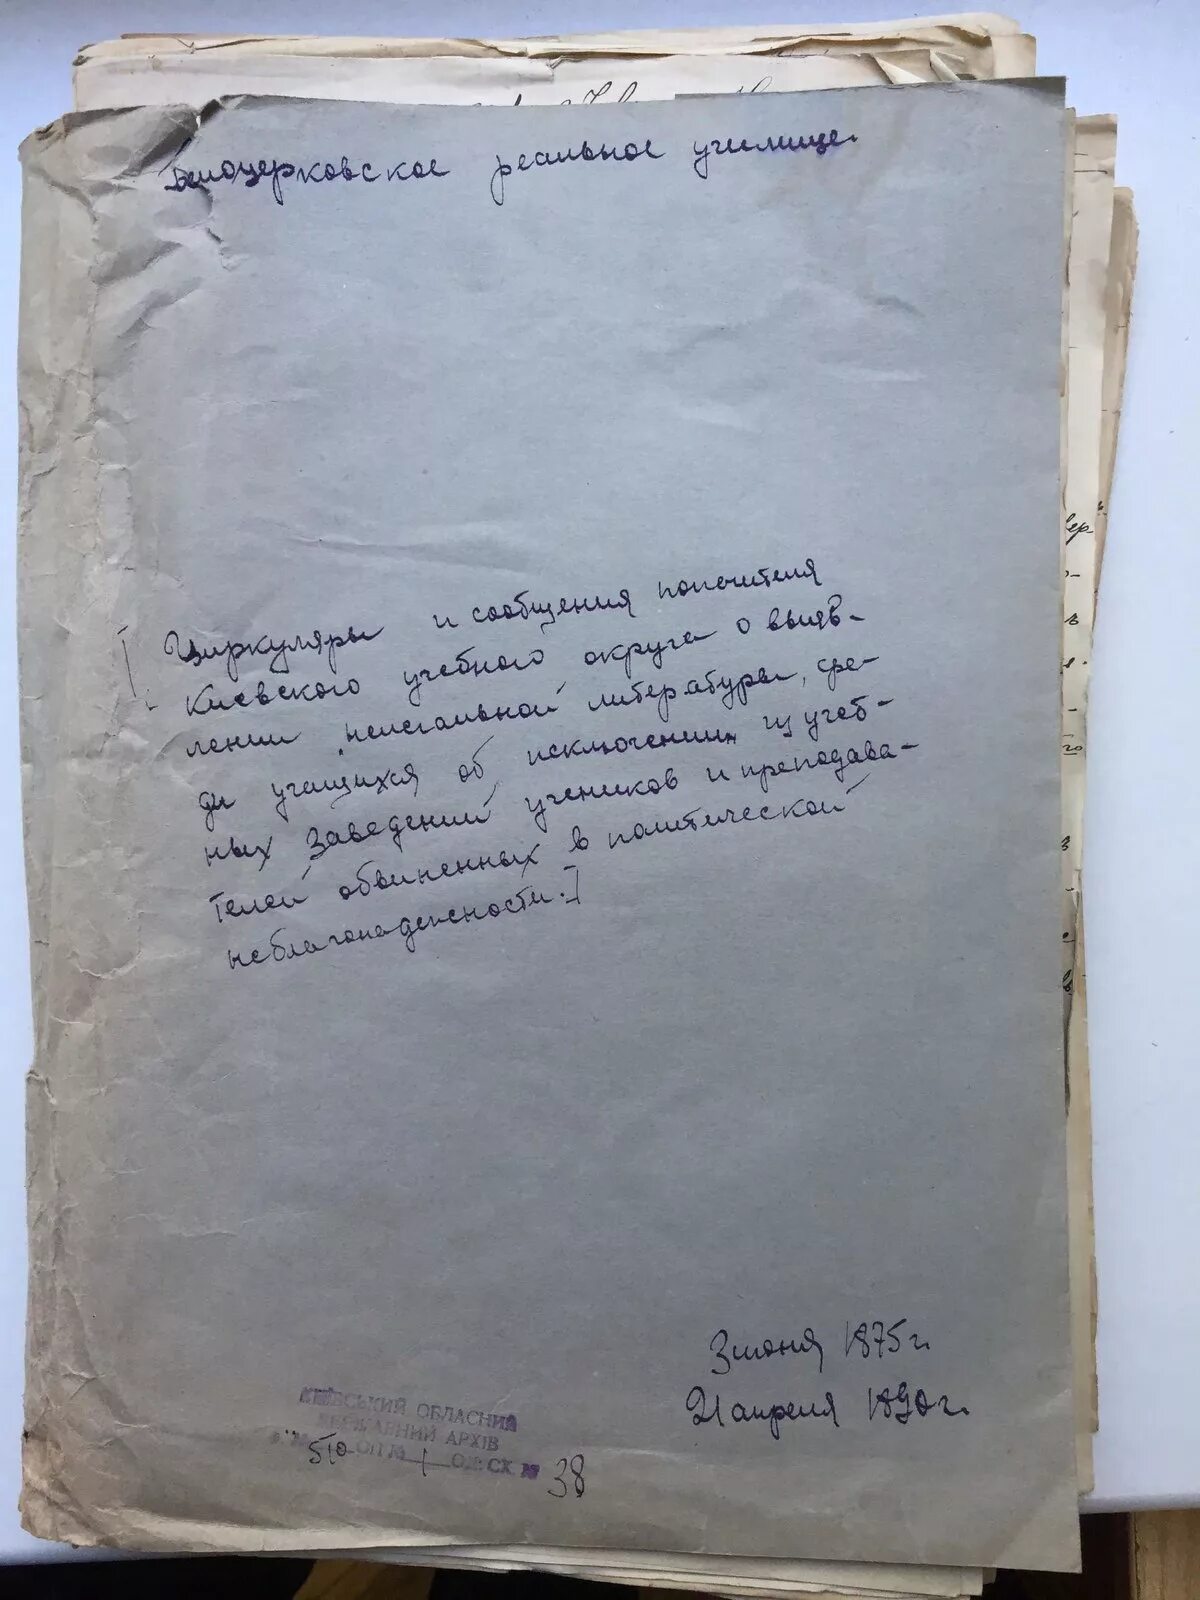 Белоцерковское реальное училище.
[ Циркуляры и сообщения попечителя
Киевского учебного округа о выяв-
лении нелегальной литературы, сре-
ди учащихся об исключении из учеб-
ных заведений учеников и преподава-
телей обвиненных в политической
неблагонадежности.]
3 июня 1875 г.
21 апреля 1890 г.
КИЇВСЬКИЙ ОБЛАСНИЙ
ДЕРЖАВНИЙ АРХІВ
510 ОП № 1 ОД. СХ. № 38